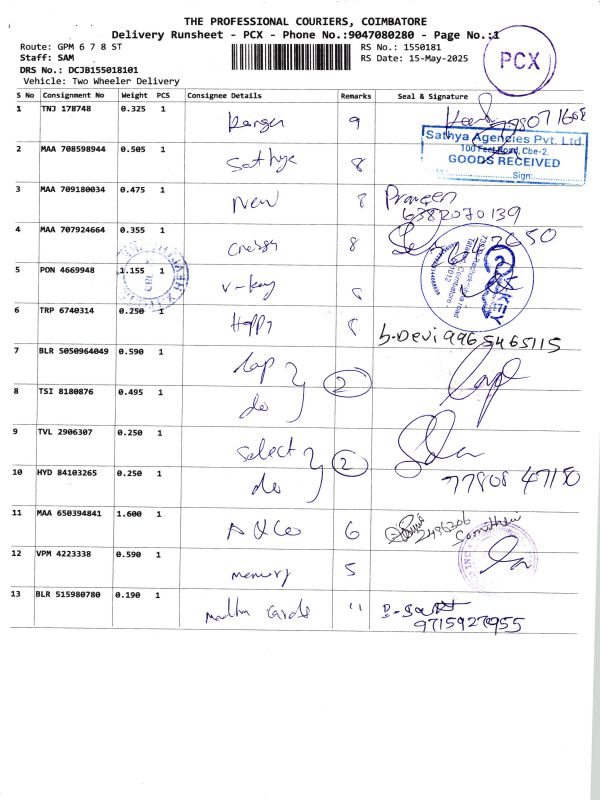 THE PROFESSIONAL COURIERS, COIMBATORE
Delivery Runsheet - PCX - Phone No.:9047080280 - Page No.:1
Route: GPM 6 7 8 ST
RS No.: 1550181
Staff: SAM
RS Date: 15-May-2025
PCX
DRS No.: DCJB155018101
Vehicle: Two Wheeler Delivery
S No Consignment No Weight PCS Consignee Details Remarks Seal & Signature
1 TNJ 178748 0.325 1 9
Sathya Agencies Pvt. Ltd.
100 Feet Road, Cbe-2.
GOODS RECEIVED
Sign:
2 MAA 708598944 0.505 1 Sathya 8
3 MAA 709180034 0.475 1 New 8 Praveen
6382070139
4 MAA 707924664 0.355 1 8
5 PON 4669948 1.155 1 V-key 8
V KEY
6 TRP 6740314 0.250 1 Happy 8 b.Devi 9965465115
7 BLR 5050964049 0.590 1 2
8 TSI 8180876 0.495 1 do
9 TVL 2906307 0.250 1 Select 2
10 HYD 84103265 0.250 1 do 77808 47150
11 MAA 650394841 1.600 1 6 2486206
12 VPM 4223338 0.590 1 memory 5
13 BLR 515980780 0.190 1 Cards 11
9715927955